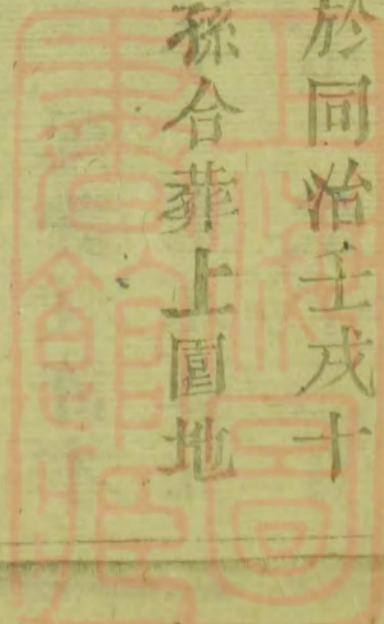 於同治壬戌十
孫合葬上園地